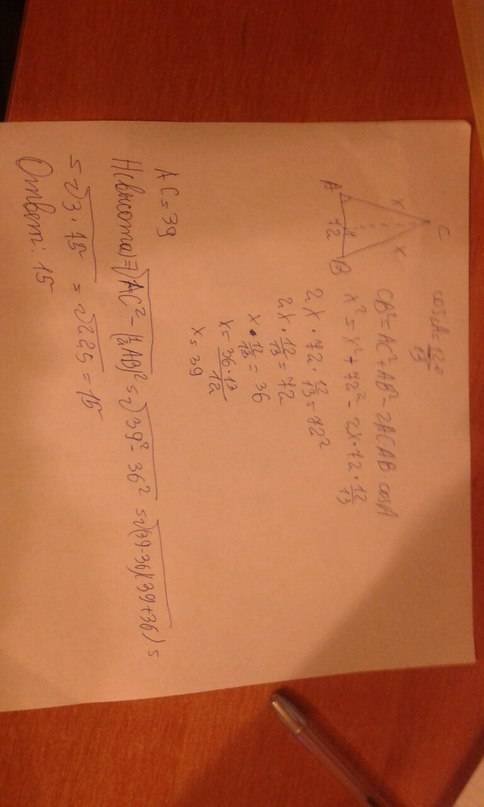 C
x x
A 72 B
H
cosA = 12/13
CB² = AC² + AB² - 2AC·AB cosA
x² = x² + 72² - 2x·72·12/13
2x·72·12/13 = 72²
2x·12/13 = 72
x·12/13 = 36
x = 36·13/12
x = 39
AC = 39
H(высота) = √AC² - (½AB)² = √39² - 36² = √(39-36)(39+36) =
= √3·75 = √225 = 15
Ответ: 15